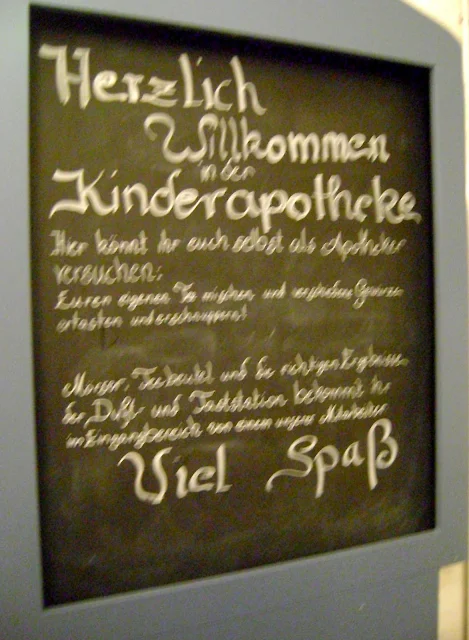 Herzlich
Willkommen
in der
Kinderapotheke
Hier könnt ihr euch selbst als Apotheker
versuchen:
Euren eigenen Tee mischen und verschiedene Gewürze
ertasten und erschnuppern!
Mörser, Teebeutel und die richtigen Ergebnisse
der Duft- und Taststation bekommt ihr
im Eingangsbereich von einem unserer Mitarbeiter
Viel Spaß